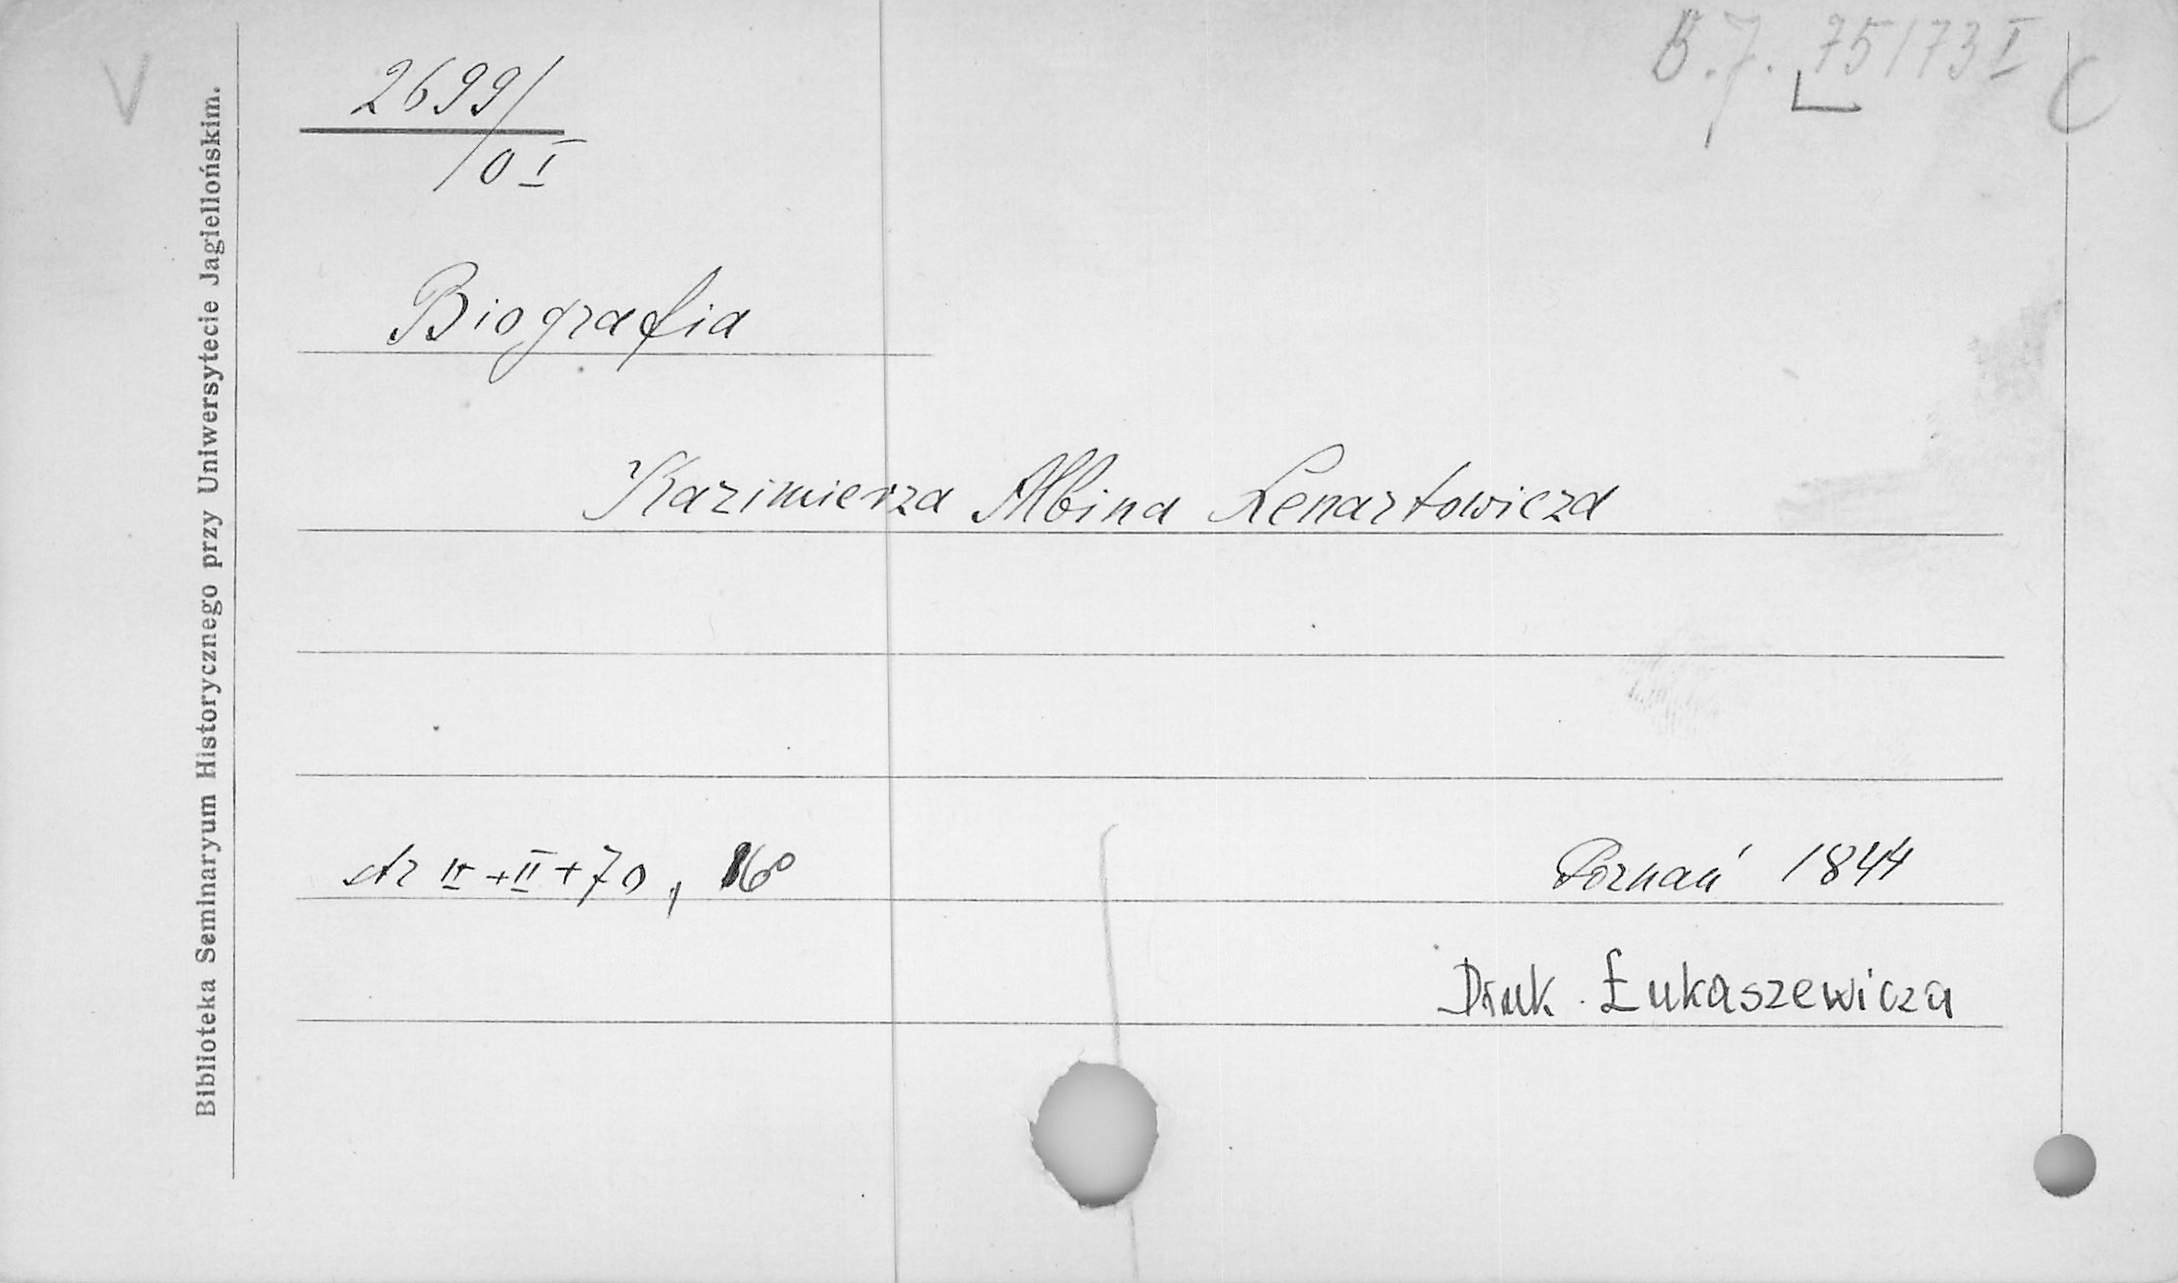 V
2699/
0 I
B.J. 75173 I C
Biografia
Kazimierza Albina Lenartowicza
str II + II + 70, 16°
Poznań 1844
Druk. Łukaszewicza
Biblioteka Seminaryum Historycznego przy Uniwersytecie Jagiellońskim.